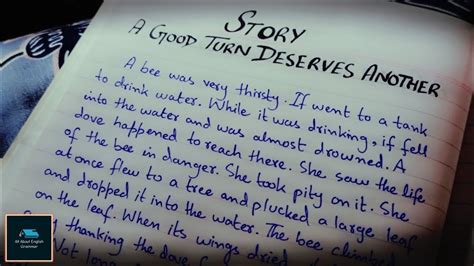 STORY
A GOOD TURN DESERVES ANOTHER
A bee was very thirsty. If went to a tank
to drink water. While it was drinking, if fell
into the water and was almost drowned. A
dove happened to reach there. She saw the life
of the bee in danger. She took pity on it. She
at once flew to a tree and plucked a large leaf
and dropped it into the water. The bee climbed
on the leaf. When its wings dried
thanking the dove
Not long
All About English
Grammar